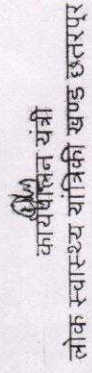 कार्यपालन यंत्री
लोक स्वास्थ्य यांत्रिकी खण्ड छतरपुर